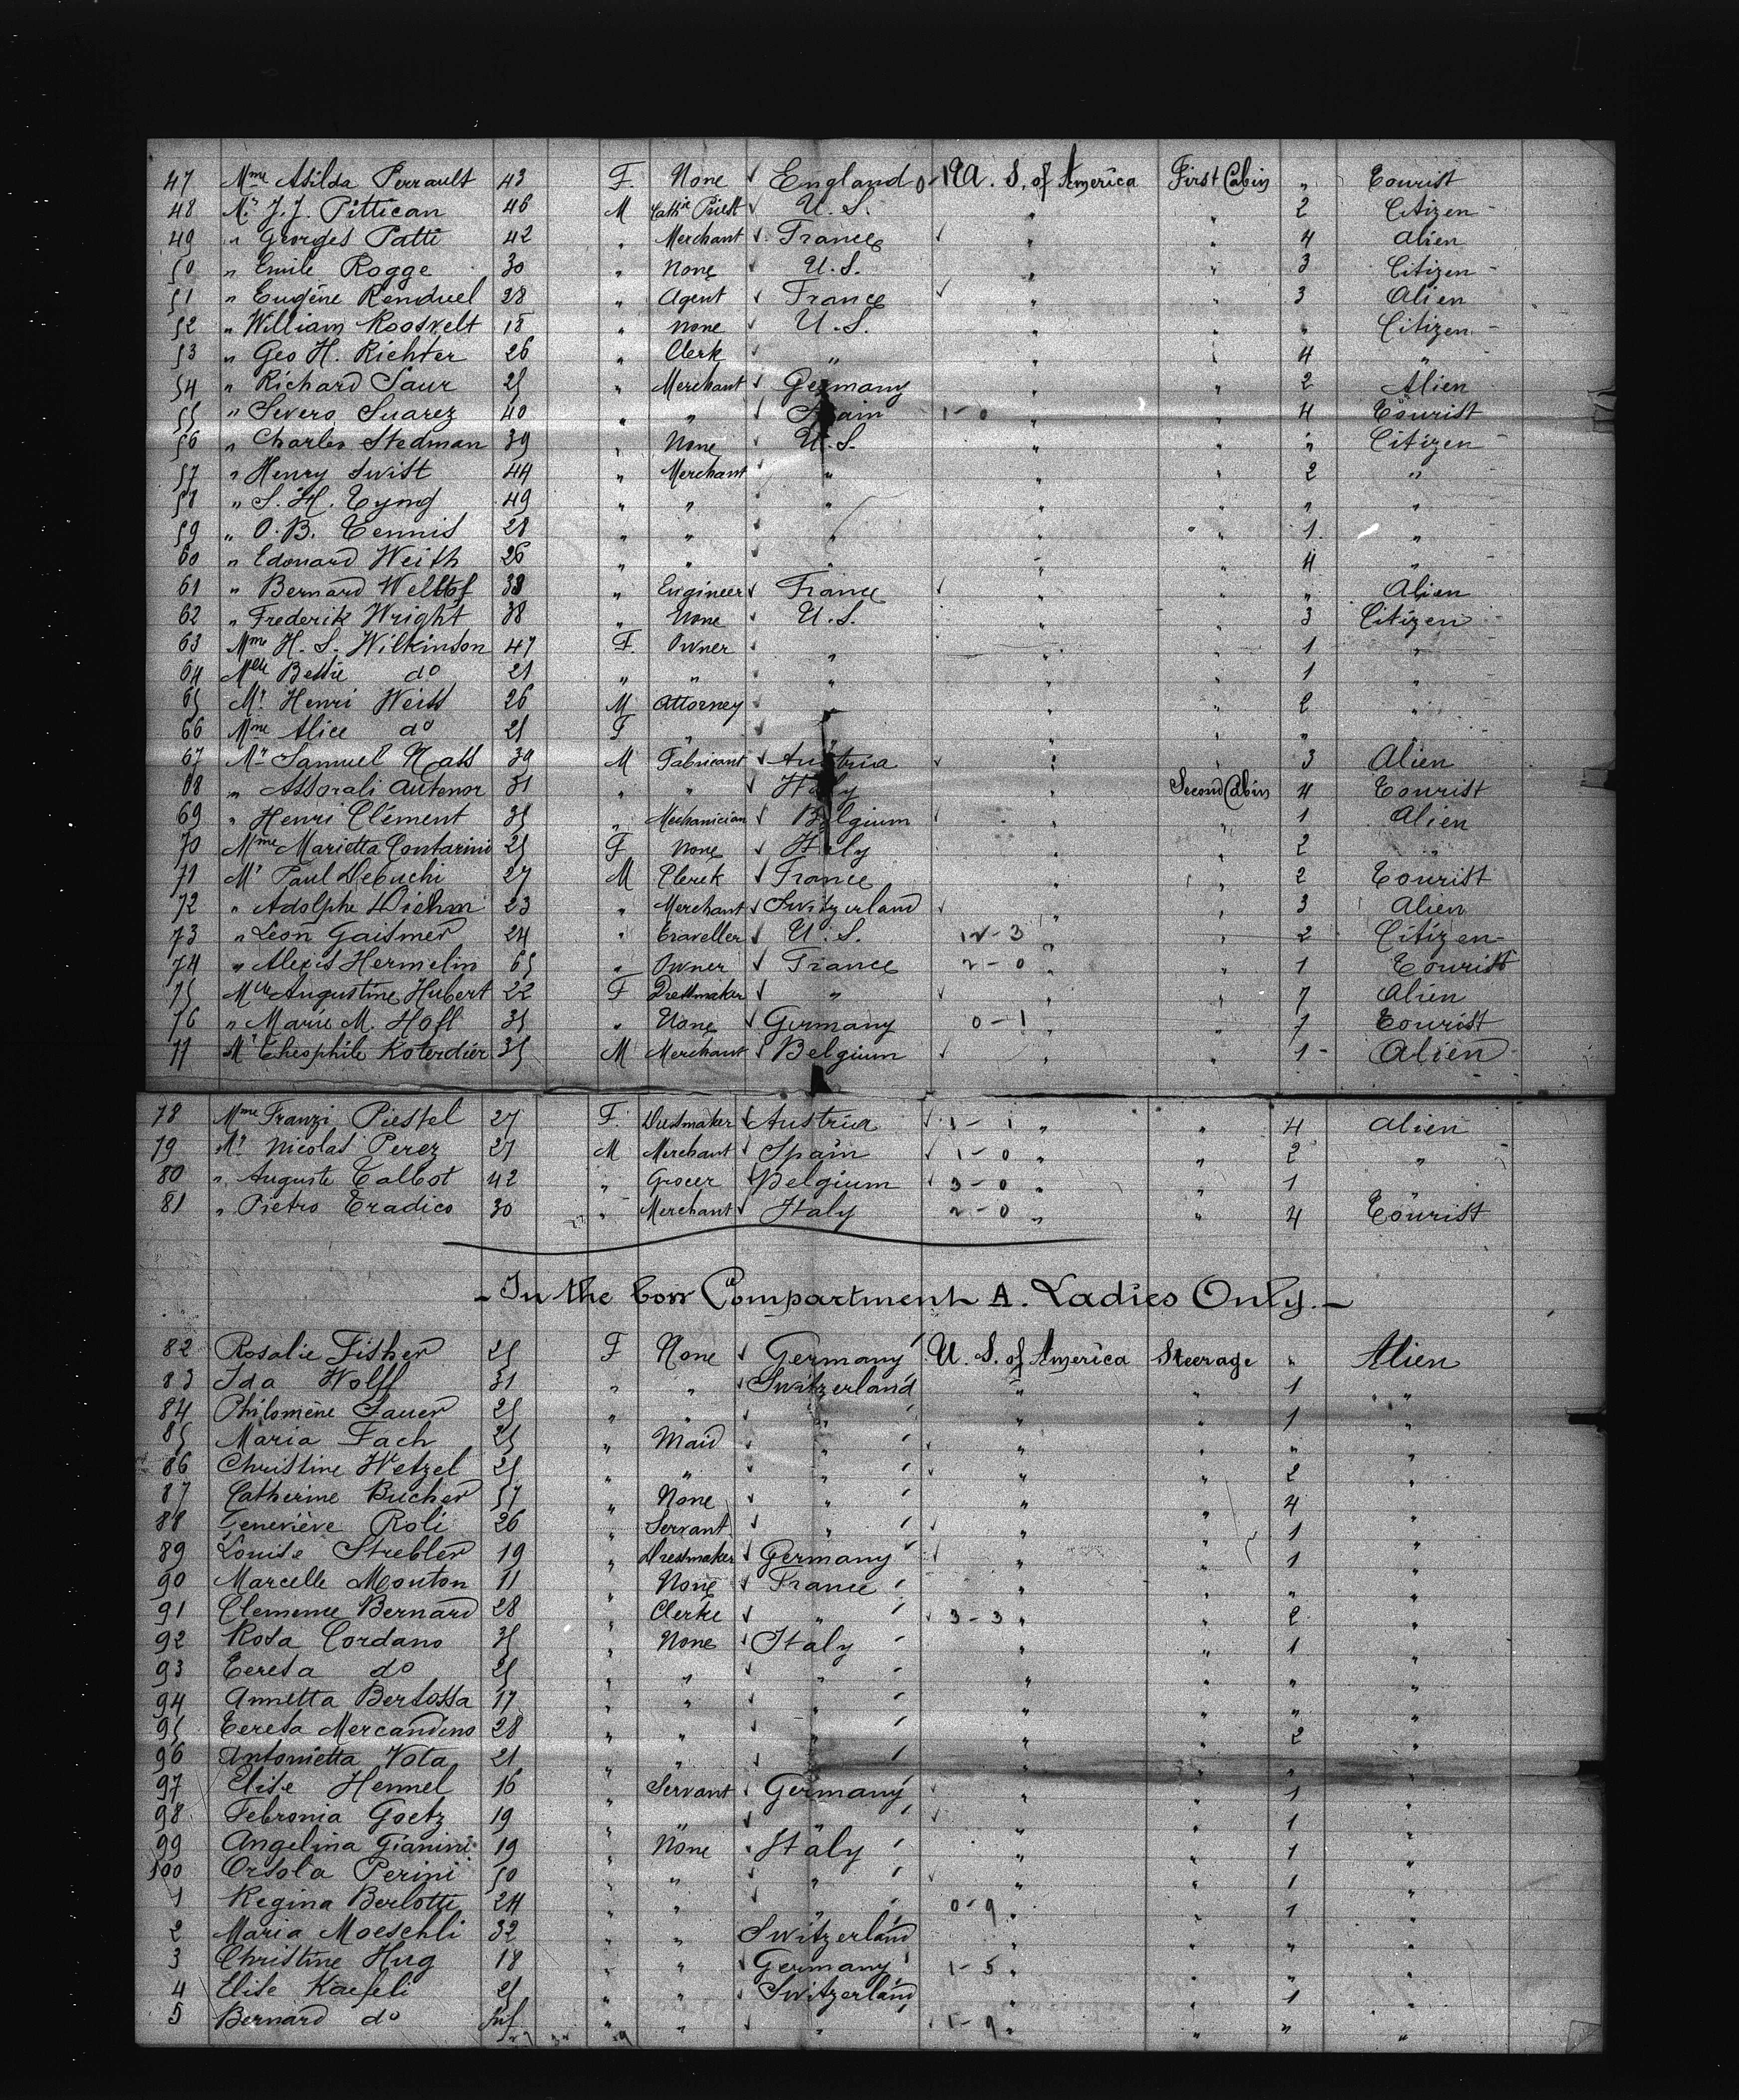 47 Mme Asilda Perrault 43 F. None England U. S. of America First Cabin " Tourist
48 Mr J. J. Pittican 46 M Cathic Priest U. S. " " 2 Citizen
49 " Georges Patti 42 " Merchant France " " 4 Alien
50 " Emile Rogge 30 " None U. S. " " 3 Citizen
51 " Eugène Renduel 28 " Agent France " " 3 Alien
52 " William Roosvelt 18 " None U. S. " " " Citizen
53 " Geo H. Richter 26 " Clerk " " " 4 "
54 " Richard Saur 25 " Merchant Germany " " 2 Alien
55 " Severo Suarez 40 " " Spain 1-0 " " 4 Tourist
56 " Charles Stedman 39 " None U. S. " " " Citizen
57 " Henry Swist 44 " Merchant " " " 2 "
58 " S. H. Tyng 49 " " " " " " "
59 " O. B. Tennis 28 " " " " " 1 "
60 " Edouard Weith 26 " " " " " 4 "
61 " Bernard Welttof 38 " Engineer France " " " Alien
62 " Frederik Wright 38 " None U. S. " " 3 Citizen
63 Mme H. S. Wilkinson 47 F. Owner " " " 1 "
64 Melle Bessie do 21 " " " " " 1 "
65 Mr Henri Weiss 26 M Attorney " " 2 "
66 Mme Alice do 25 F " " " " "
67 Mr Samuel Nass 39 M Fabricant Austria " 3 Alien
68 " Assorali Autenor 31 " " Italy " Second Cabin 4 Tourist
69 " Henri Clément 35 " Mechanician Belgium " " 1 Alien
70 Mme Marietta Contarini 25 F None Italy " 2 "
71 Mr Paul Debuchi 27 M Clerck France " " 2 Tourist
72 " Adolphe Diehm 23 " Merchant Switzerland " " 3 Alien
73 " Léon Gaismer 24 " Traveller U. S. 12-3 " " 2 Citizen
74 " Alexis Hermelin 65 " Owner France 2-0 " " 1 Tourist
75 Melle Augustine Hubert 22 F Dressmaker " " " 7 Alien
76 " Marie M. Hoff 35 " None Germany 0-1 " " 7 Tourist
77 Mr Théophile Koterdier 35 M Merchant Belgium " " 1 Alien
78 Mme Franzi Piestel 27 F. Dressmaker Austria 1-1 " " 4 Alien
79 Mr Nicolas Perez 27 M Merchant Spain 1-0 " " 2 "
80 " Auguste Talbot 42 " Grocer Belgium 3-0 " " 1
81 " Pietro Tradico 30 " Merchant Italy 2-0 " " 4 Tourist
- In the bow Compartment A. Ladies Only. -
82 Rosalie Fisher 25 F None Germany U. S. of America Steerage " Alien
83 Ida Wolff 31 " " Switzerland " " 1 "
84 Philomène Sauer 25 " " " " " 1 "
85 Maria Fach 25 " Maid " " " " "
86 Christine Wetzel 25 " " " " " 2 "
87 Catherine Bucher 57 " None " " " 4 "
88 Geneviève Roli 26 " Servant " " " 1 "
89 Louise Strebler 19 " Dressmaker Germany " " 1 "
90 Marcelle Mouton 11 " None France " " " "
91 Clemence Bernard 28 " Clerke " 3-3 " " 2 "
92 Rosa Cordano 35 " None Italy " " 1 "
93 Teresa do 25 " " " " " " "
94 Annetta Bertossa 17 " " " " " " "
95 Teresa Mercandino 28 " " " " " 2 "
96 Antonietta Vota 21 " " " " " " "
97 Elise Hennel 16 " Servant Germany " " 1 "
98 Febronia Goetz 19 " " " " " 1 "
99 Angelina Gianini 19 " None Italy " " 1 "
100 Orsola Perini 50 " " " " " 1 "
1 Regina Berlotti 24 " " " 0-9 " " 1 "
2 Maria Moeschli 32 " " Switzerland " " " "
3 Christine Hug 18 " " Germany 1-5 " " " "
4 Elise Kaefeli 25 " " Switzerland " " 1 "
5 Bernard do Inf. " " " 1-9 " " " "